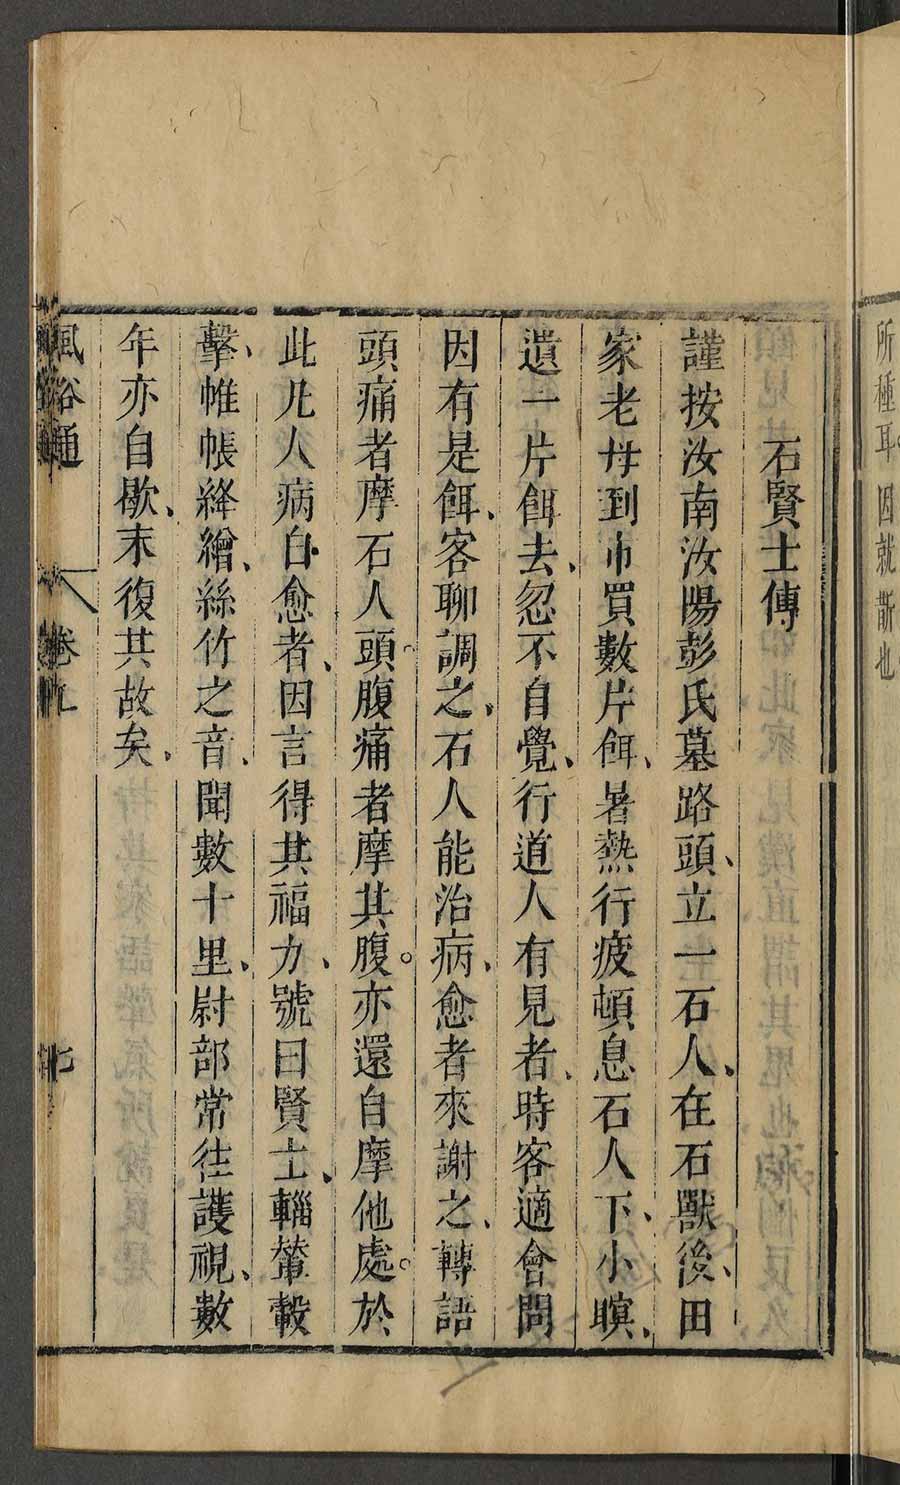 所種耳因就斮也
石賢士傳
謹按汝南汝陽彭氏墓路頭、立一石人、在石獸後、田
家老母到市買數片餌、暑熱行疲頓息石人下、小瞑、
遺一片餌去、忽不自覺、行道人有見者、時客適會問
因有是餌、客聊調之、石人能治病、愈者來謝之、轉語
頭痛者摩石人頭。腹痛者摩其腹。亦還自摩他處。於
此凡人病自愈者、因言得其福力、號曰賢士、輜輦轂
擊、帷帳絳繒、絲竹之音、聞數十里、尉部常往護視、數
年亦自歇、末復其故矣、
風俗通 卷九 七